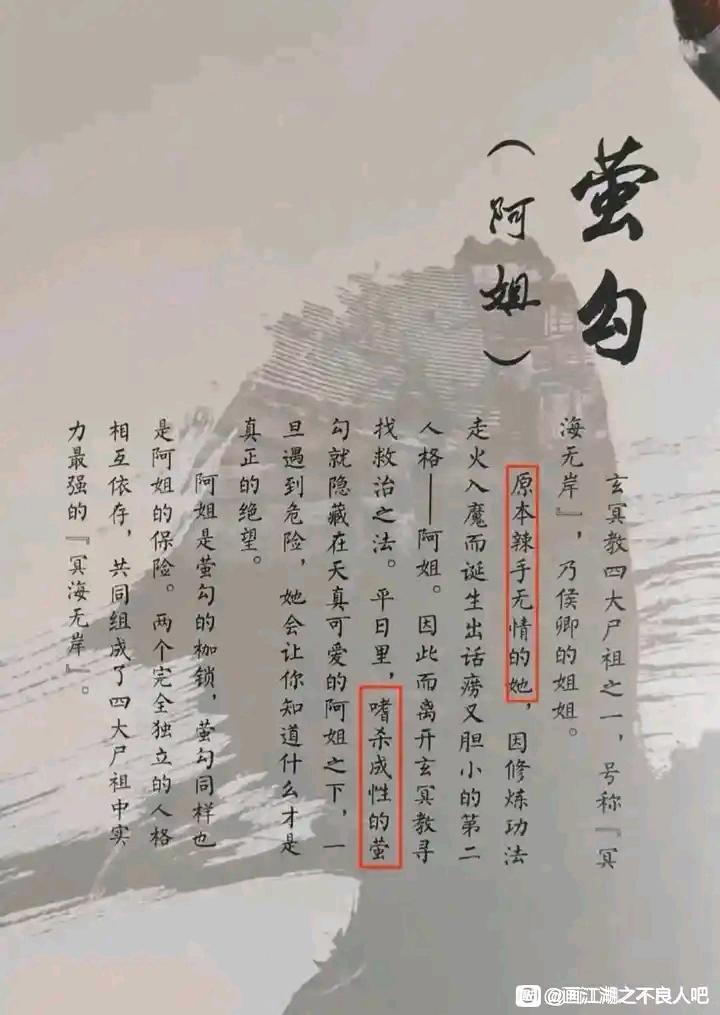 萤勾
（阿姐）
玄冥教四大尸祖之一，号称『冥
海无岸』，乃侯卿的姐姐。
原本辣手无情的她，因修炼功法
走火入魔而诞生出话痨又胆小的第二
人格——阿姐。因此而离开玄冥教寻
找救治之法。平日里，嗜杀成性的萤
勾就隐藏在天真可爱的阿姐之下，一
旦遇到危险，她会让你知道什么才是
真正的绝望。
阿姐是萤勾的枷锁，萤勾同样也
是阿姐的保险。两个完全独立的人格
相互依存，共同组成了四大尸祖中实
力最强的『冥海无岸』。
@画江湖之不良人吧